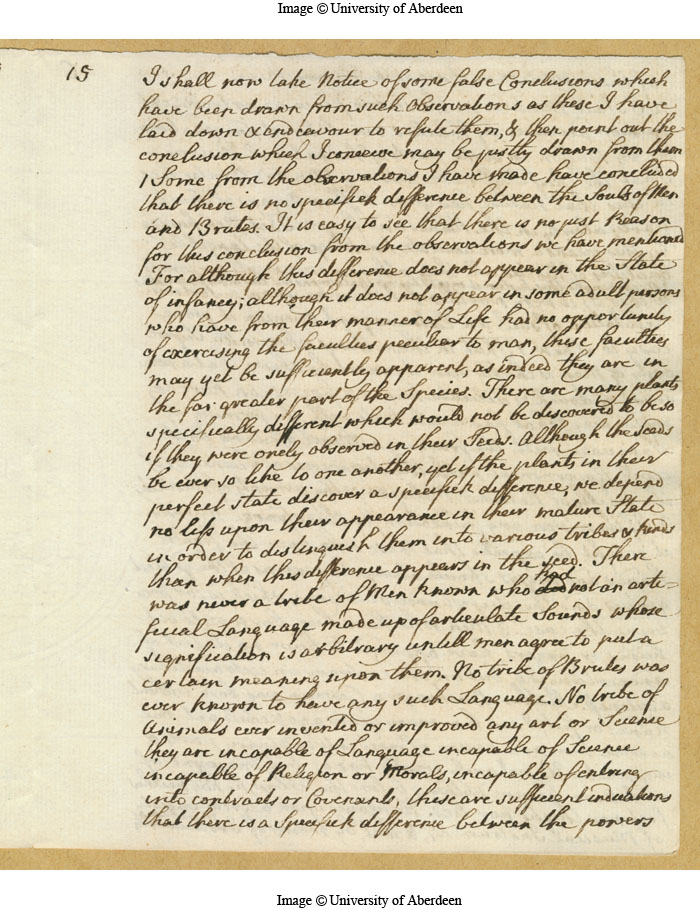 Image © University of Aberdeen
15
I shall now take Notice of some false Conclusions which
have been drawn from such Observations as these I have
laid down & endeavour to refute them, & then point out the
conclusion which I conceive may be justly drawn from them
1 Some from the observations I have made have concluded
that there is no specifick difference between the Souls of Men
and Brutes. It is easy to see that there is no just Reason
for this conclusion from the observations we have mentioned
For although this difference does not appear in the State
of infancy; although it does not appear in some adult persons
who have from their manner of Life had no opportunity
of exercising the faculties peculiar to man, these faculties
may yet be sufficiently apparent, as indeed they are in
the far greater part of the Species. There are many plants
specifically different which would not be discovered to be so
if they were onely observed in their Seeds. Although the seeds
be ever so like to one another, yet if the plants in their
perfect state discover a specifick difference, we depend
no less upon their appearance in their mature State
in order to distinguish them into various tribes & kinds
than when this difference appears in the seed. There
was never a tribe of Men known who had not an arti-
ficial Language made up of articulate Sounds whose
signification is arbitrary untill men agree to put a
certain meaning upon them. No tribe of Brutes was
ever known to have any such Language. No tribe of
Animals ever invented or improved any art or Science
they are incapable of Language incapable of Science
incapable of Religion or Morals, incapable of entring
into contracts or Covenants, these are sufficient indications
that there is a Specifick difference between the powers
Image © University of Aberdeen